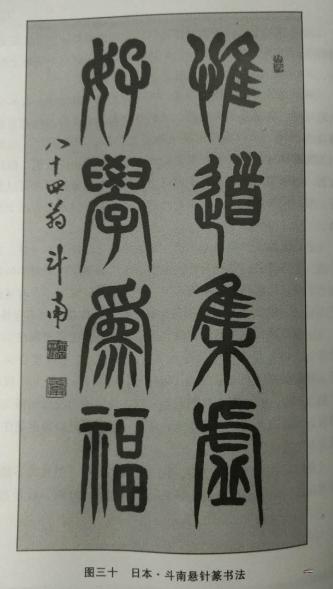 惟道集虚
好學爲福
八十四翁 斗南
图三十 日本·斗南悬针篆书法